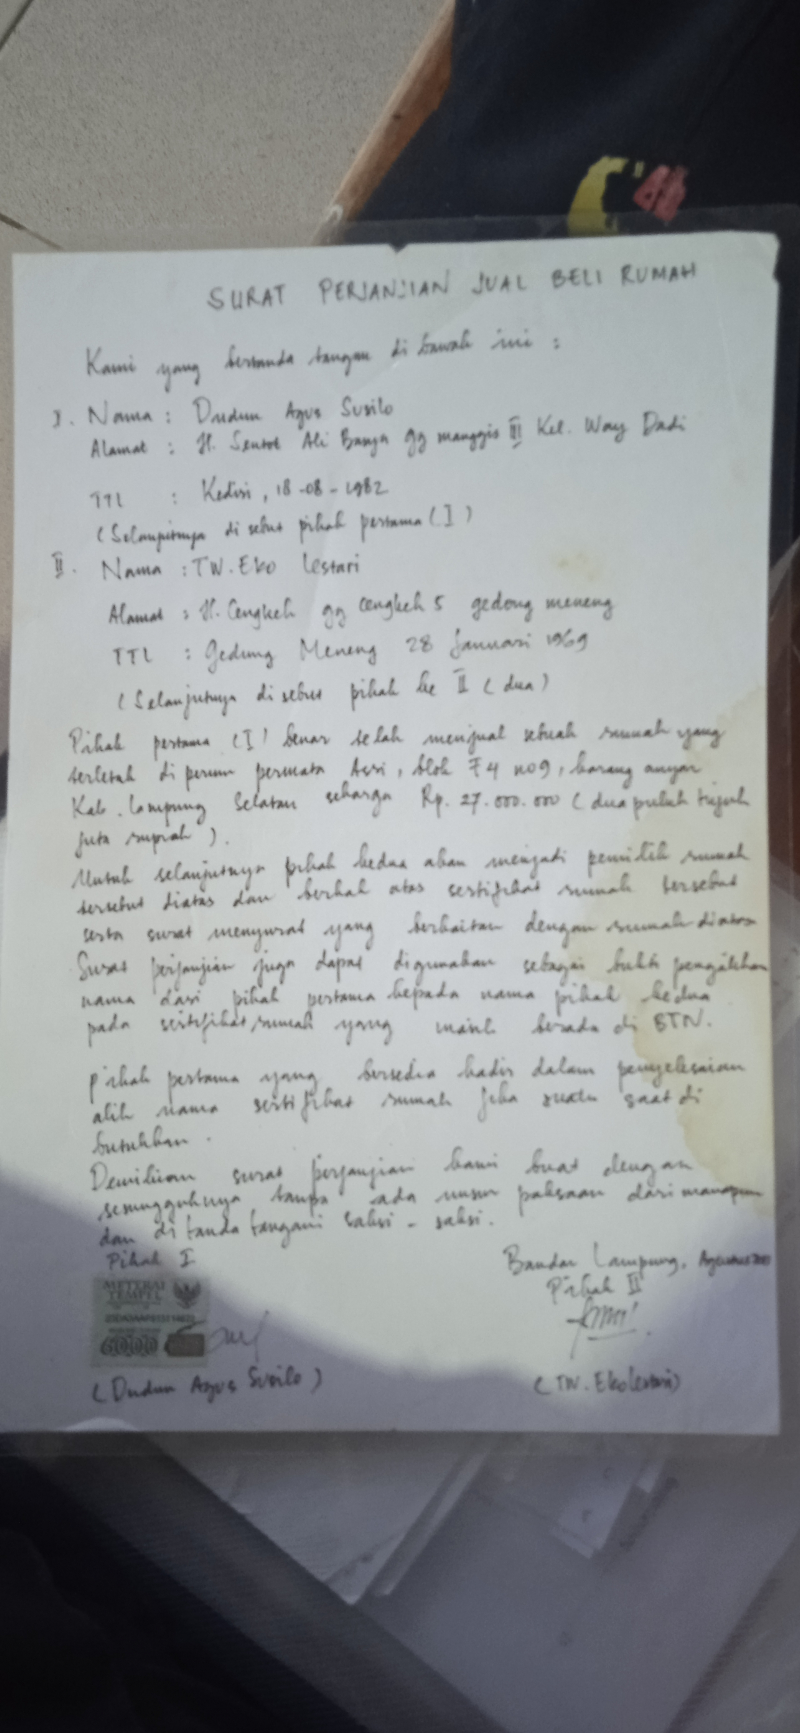 SURAT PERJANJIAN JUAL BELI RUMAH
Kami yang bertanda tangan di bawah ini :
I. Nama : Dudun Agus Susilo
Alamat : Jl. Sentot Ali Basya gg manggis III Kel. Way Dadi
TTL : Kediri, 18-08-1982
(Selanjutnya di sebut pihak pertama (I)
II. Nama : TW. Eko Lestari
Alamat : Jl. Cengkeh gg cengkeh 5 gedong meneng
TTL : Gedung Meneng 28 Januari 1969
(Selanjutnya di sebut pihak ke II (dua)
Pihak pertama (I) benar telah menjual sebuah rumah yang
terletak di perum permata Asri, blok F4 no9, karang anyar
Kab. Lampung Selatan seharga Rp. 27.000.000 (dua puluh tujuh
juta rupiah).
Untuk selanjutnya pihak kedua akan menjadi pemilik rumah
tersebut diatas dan berhak atas sertifikat rumah tersebut
serta surat menyurat yang berkaitan dengan rumah diatas
Surat perjanjian juga dapat digunakan sebagai bukti pengalihan
nama dari pihak pertama kepada nama pihak kedua
pada sertifikat rumah yang masih berada di BTN.
Pihak pertama yang bersedia hadir dalam penyelesaian
alih nama sertifikat rumah jika suatu saat di
butuhkan.
Demikian surat perjanjian kami buat dengan
sesungguhnya tanpa ada unsur paksaan dari manapun
dan di tanda tangani saksi - saksi.
Bandar Lampung, Agustus
Pihak I
Pihak II
METERAI
TEMPEL
6000
(Dudun Agus Susilo)
(TW. Eko Lestari)